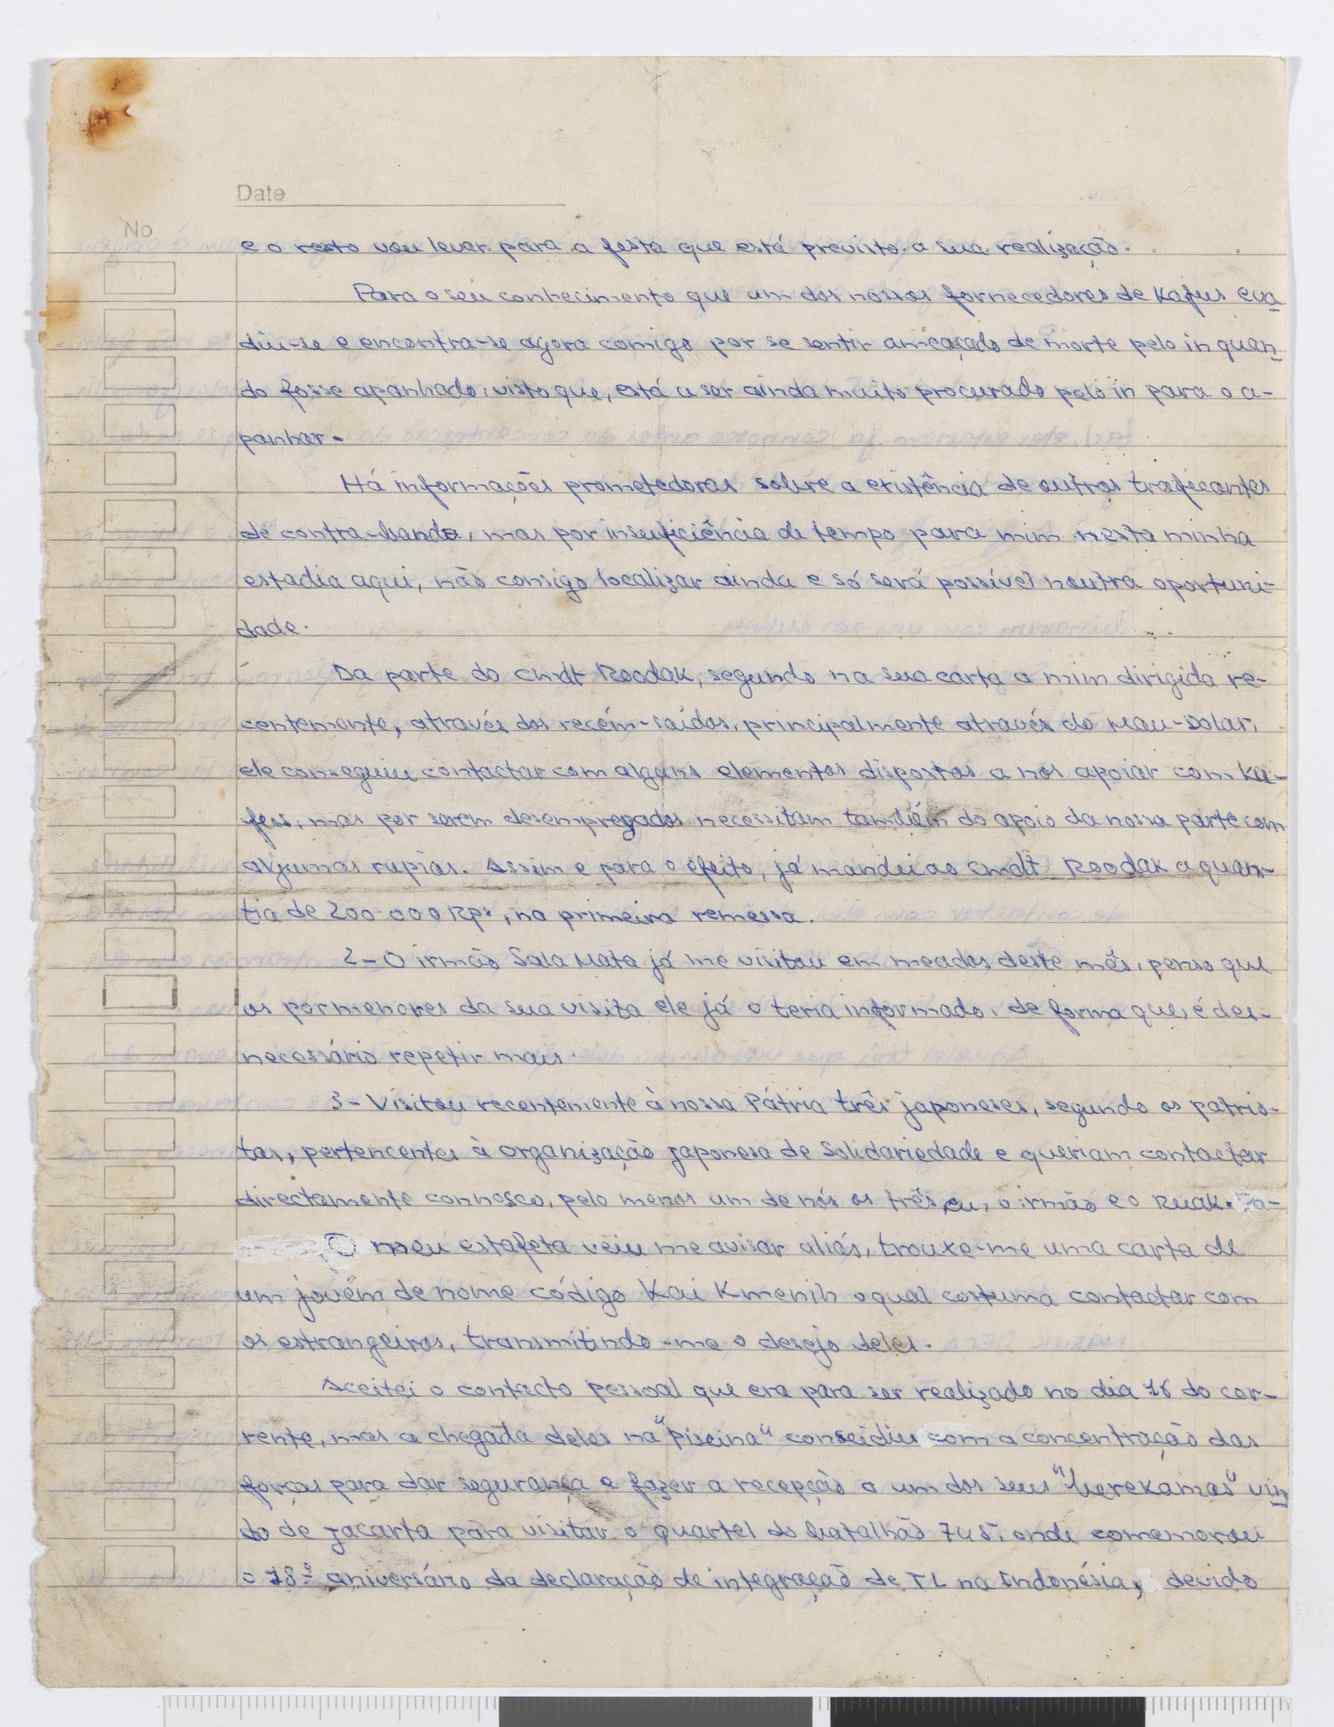 Date
No
e o resto vou levar para a festa que está previsto a sua realização.
Para o seu conhecimento que um dos nossos fornecedores de Kafus eva
diu-se e encontra-se agora comigo por se sentir ameaçado de morte pelo in quan
do fosse apanhado, visto que, está a ser ainda muito procurado pelo in para o a-
panhar.
Há informações prometedoras sobre a existência de outros traficantes
de contra-bando, mas por insuficiência de tempo para mim nesta minha
estadia aqui, não consigo localizar ainda e só será possível noutra oportuni-
dade.
Da parte do Cmdt Roodak, segundo na sua carta a mim dirigida re-
centemente, através dos recém-saídos, principalmente através do Mau-Solar,
ele conseguiu contactar com alguns elementos dispostos a nos apoiar com Ka-
fus, mas por serem desempregados necessitam também do apoio da nossa parte com
algumas rupias. Assim e para o efeito, já mandei ao Cmdt Roodak a quan-
tia de 200 000 Rps, na primeira remessa.
2- O irmão Sala Mata já me visitou em meados deste mês, penso que
os pormenores da sua visita ele já o teria informado, de forma que, é des-
necessário repetir mais.
3- Visitou recentemente à nossa Pátria três japoneses, segundo os patrio-
tas, pertencentes à Organização japonesa de Solidariedade e queriam contactar
directamente connosco, pelo menos um de nós os três, eu, o irmão e o Ruak.
O meu estafeta veiu me avisar aliás, trouxe-me uma carta de
um jovém de nome código Kai Kmenih o qual costuma contactar com
os estrangeiros, transmitindo-me o desejo deles.
Aceitei o contacto pessoal que era para ser realizado no dia 16 do cor-
rente, mas a chegada deles na "piscina" conscidiu com a concentração das
forças para dar segurança e fazer a recepção a um dos seus "berekamas" vin
do de Jacarta para visitar o quartel do batalhão 745, onde comemorou
o 18º aniversário da declaração de integração de TL na Indonésia, devido